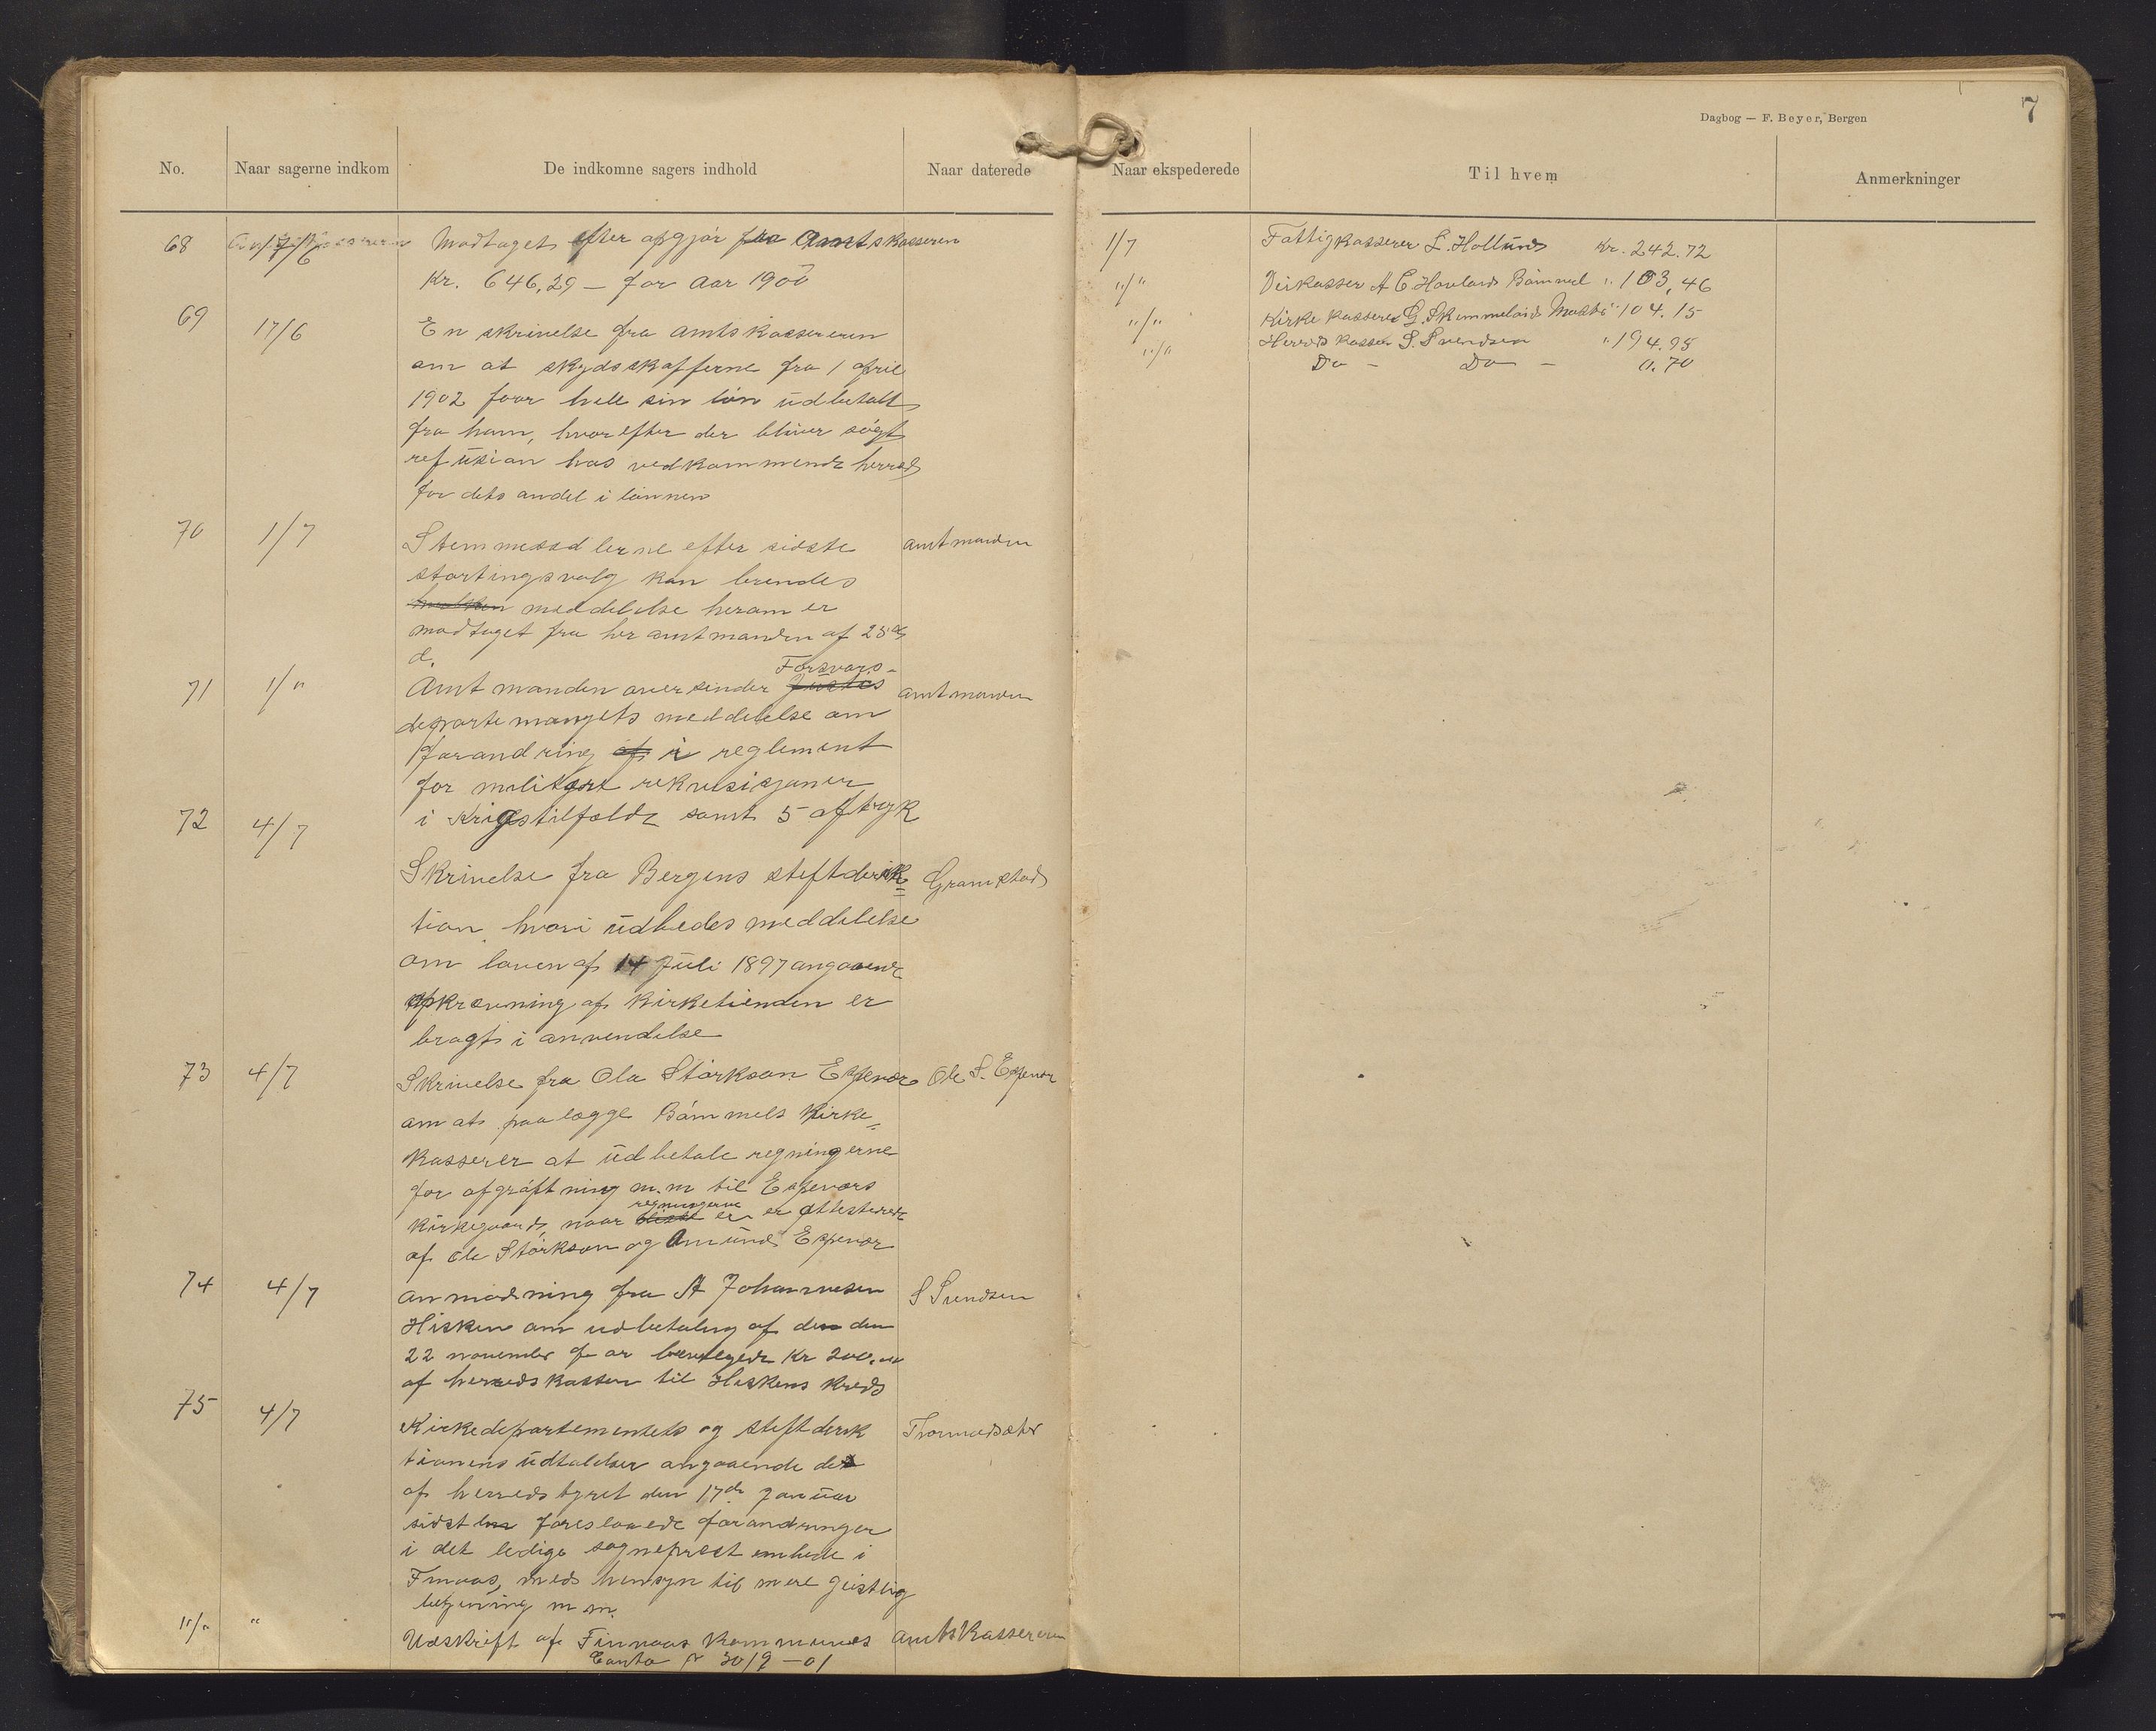 Dagbog — F. Beyer, Bergen
7
No. Naar sagerne indkom De indkomne sagers indhold Naar daterede Naar ekspederede Til hvem Anmerkninger
68 17/6 Modtaget efter opgjør fra Amtskasseren
Kr. 646,29 — for aar 1900
69 17/6 En skrivelse fra amtskassereren
om at skydsskafferne fra 1 april
1902 faar hele sin løn udbetalt
fra ham, hvorefter der bliver søgt
refusion hos vedkommende herred
for dets andel i lønnen
70 1/7 Stemmesedlerne efter sidste amtmanden
stortingsvalg kan brendes
meddelelse herom er
modtaget fra hr amtmanden af 25de
d.
Forsvars-
71 1/" Amtmanden oversender Justis amtmanden
departemangets meddelelse om
forandring af i reglement
for militært rekvisisjoner
i Krigstilfælde samt 5 aftryk
72 4/7
Skrivelse fra Bergens stiftdirek= Gramstad
tion hvori udbedes meddelelse
om loven af 14 Juli 1897 angaaende
opkrævning af kirketienden er
bragt i anvendelse
73 4/7 Skrivelse fra Ola Størkson Espevær Ole S. Espevær
om at paalægge Bømmels Kirke=
kasserer at udbetale regningerne
for afgrøftning m.m til Espeværs
regningerne
kirkegaard, naar er er attesterede
af Ole Størkson og Amund Espevær
74 4/7 anmodning fra A Johannesen S Svendsen
Hisken om udbetaling af den den
22 november f ar bevilgede Kr 200.00
af herredskassen til Hiskens kreds
75 4/7 Kirkedepartementets og stiftdirek Tormodsæter
tionens udtalelser angaaende de
af herredstyret den 17de januar
sidstl foreslaaede forandringer
i det ledige sogneprest embede i
Finnaas, med hensyn til mere geistlig
betjening m m.
"/" " Udskrift af Finnaas Kommunes amtskassereren
Conto pr 30/9 – 01
1/7 Fattigkasserer L. Hollund Kr. 242.72
"/" Veikasser A C. Hovland Bømmel " 103,46
"/" Kirkekasserer G. Skimmeland Mosta " 104.15
"/" Herreds kasser S. Svendsen " 194.95
Do – Do – 0.70